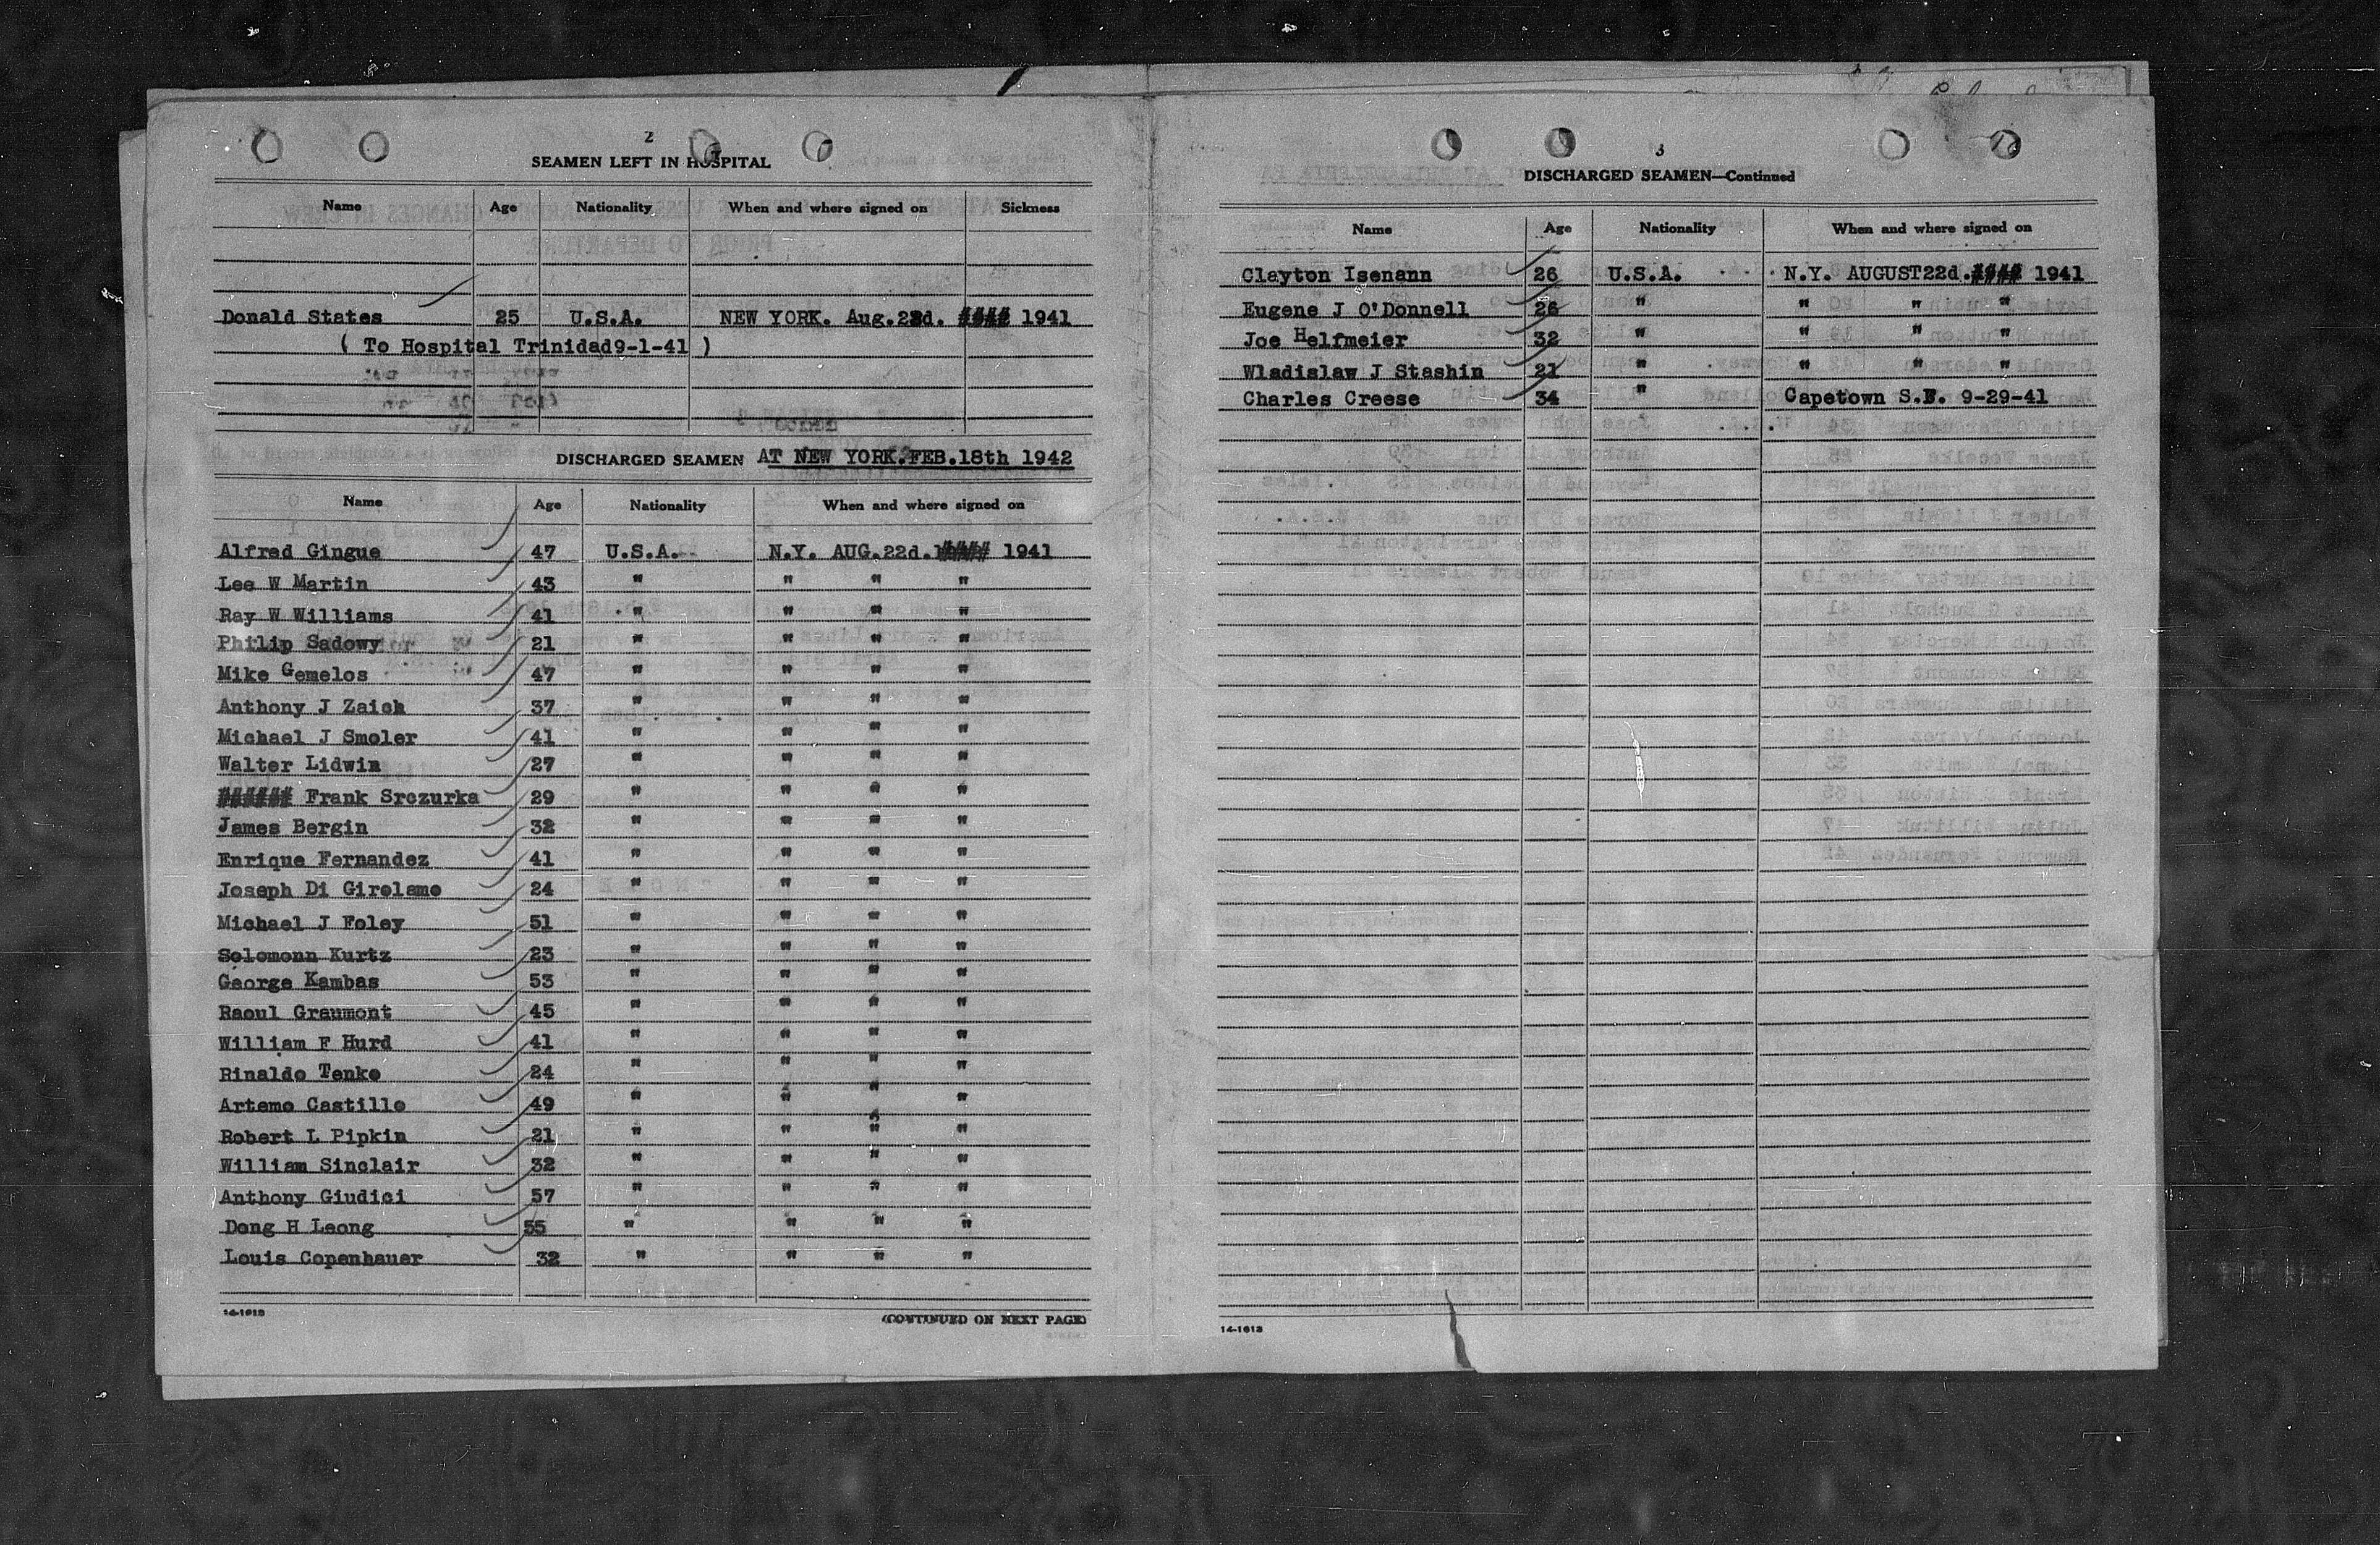 2
SEAMEN LEFT IN HOSPITAL
Name Age Nationality When and where signed on Sickness
Donald States 25 U.S.A. NEW YORK. Aug.22d. #### 1941
( To Hospital Trinidad9-1-41 )
DISCHARGED SEAMEN AT NEW YORK.FEB.18th 1942
Name Age Nationality When and where signed on
Alfred Gingue 47 U.S.A. N.Y. AUG.22d.1#### 1941
Lee W Martin 43 " " " "
Ray W Williams 41 " " " "
Philip Sadowy 21 " " " "
Mike Gemelos 47 " " " "
Anthony J Zaich 37 " " " "
Michael J Smoler 41 " " " "
Walter Lidwin 27 " " " "
###### Frank Srczurka 29 " " " "
James Bergin 32 " " " "
Enrique Fernandez 41 " " " "
Joseph Di Girolamo 24 " " " "
Michael J Foley 51 " " " "
Solomonn Kurtz 23 " " " "
George Kambas 53 " " " "
Raoul Graumont 45 " " " "
William F Hurd 41 " " " "
Rinaldo Tenko 24 " " " "
Artemo Castillo 49 " " " "
Robert L Pipkin 21 " " " "
William Sinclair 32 " " " "
Anthony Giudici 57 " " " "
Dong H Leong 55 " " " "
Louis Copenhauer 32 " " " "
14-1613
(CONTINUED ON NEXT PAGE)
3
DISCHARGED SEAMEN—Continued
Name Age Nationality When and where signed on
Clayton Isenann 26 U.S.A. N.Y. AUGUST22d.#### 1941
Eugene J O'Donnell 26 " " " "
Joe Helfmeier 32 " " " "
Wladislaw J Stashin 21 " " " "
Charles Creese 34 " Capetown S.F. 9-29-41
14-1613